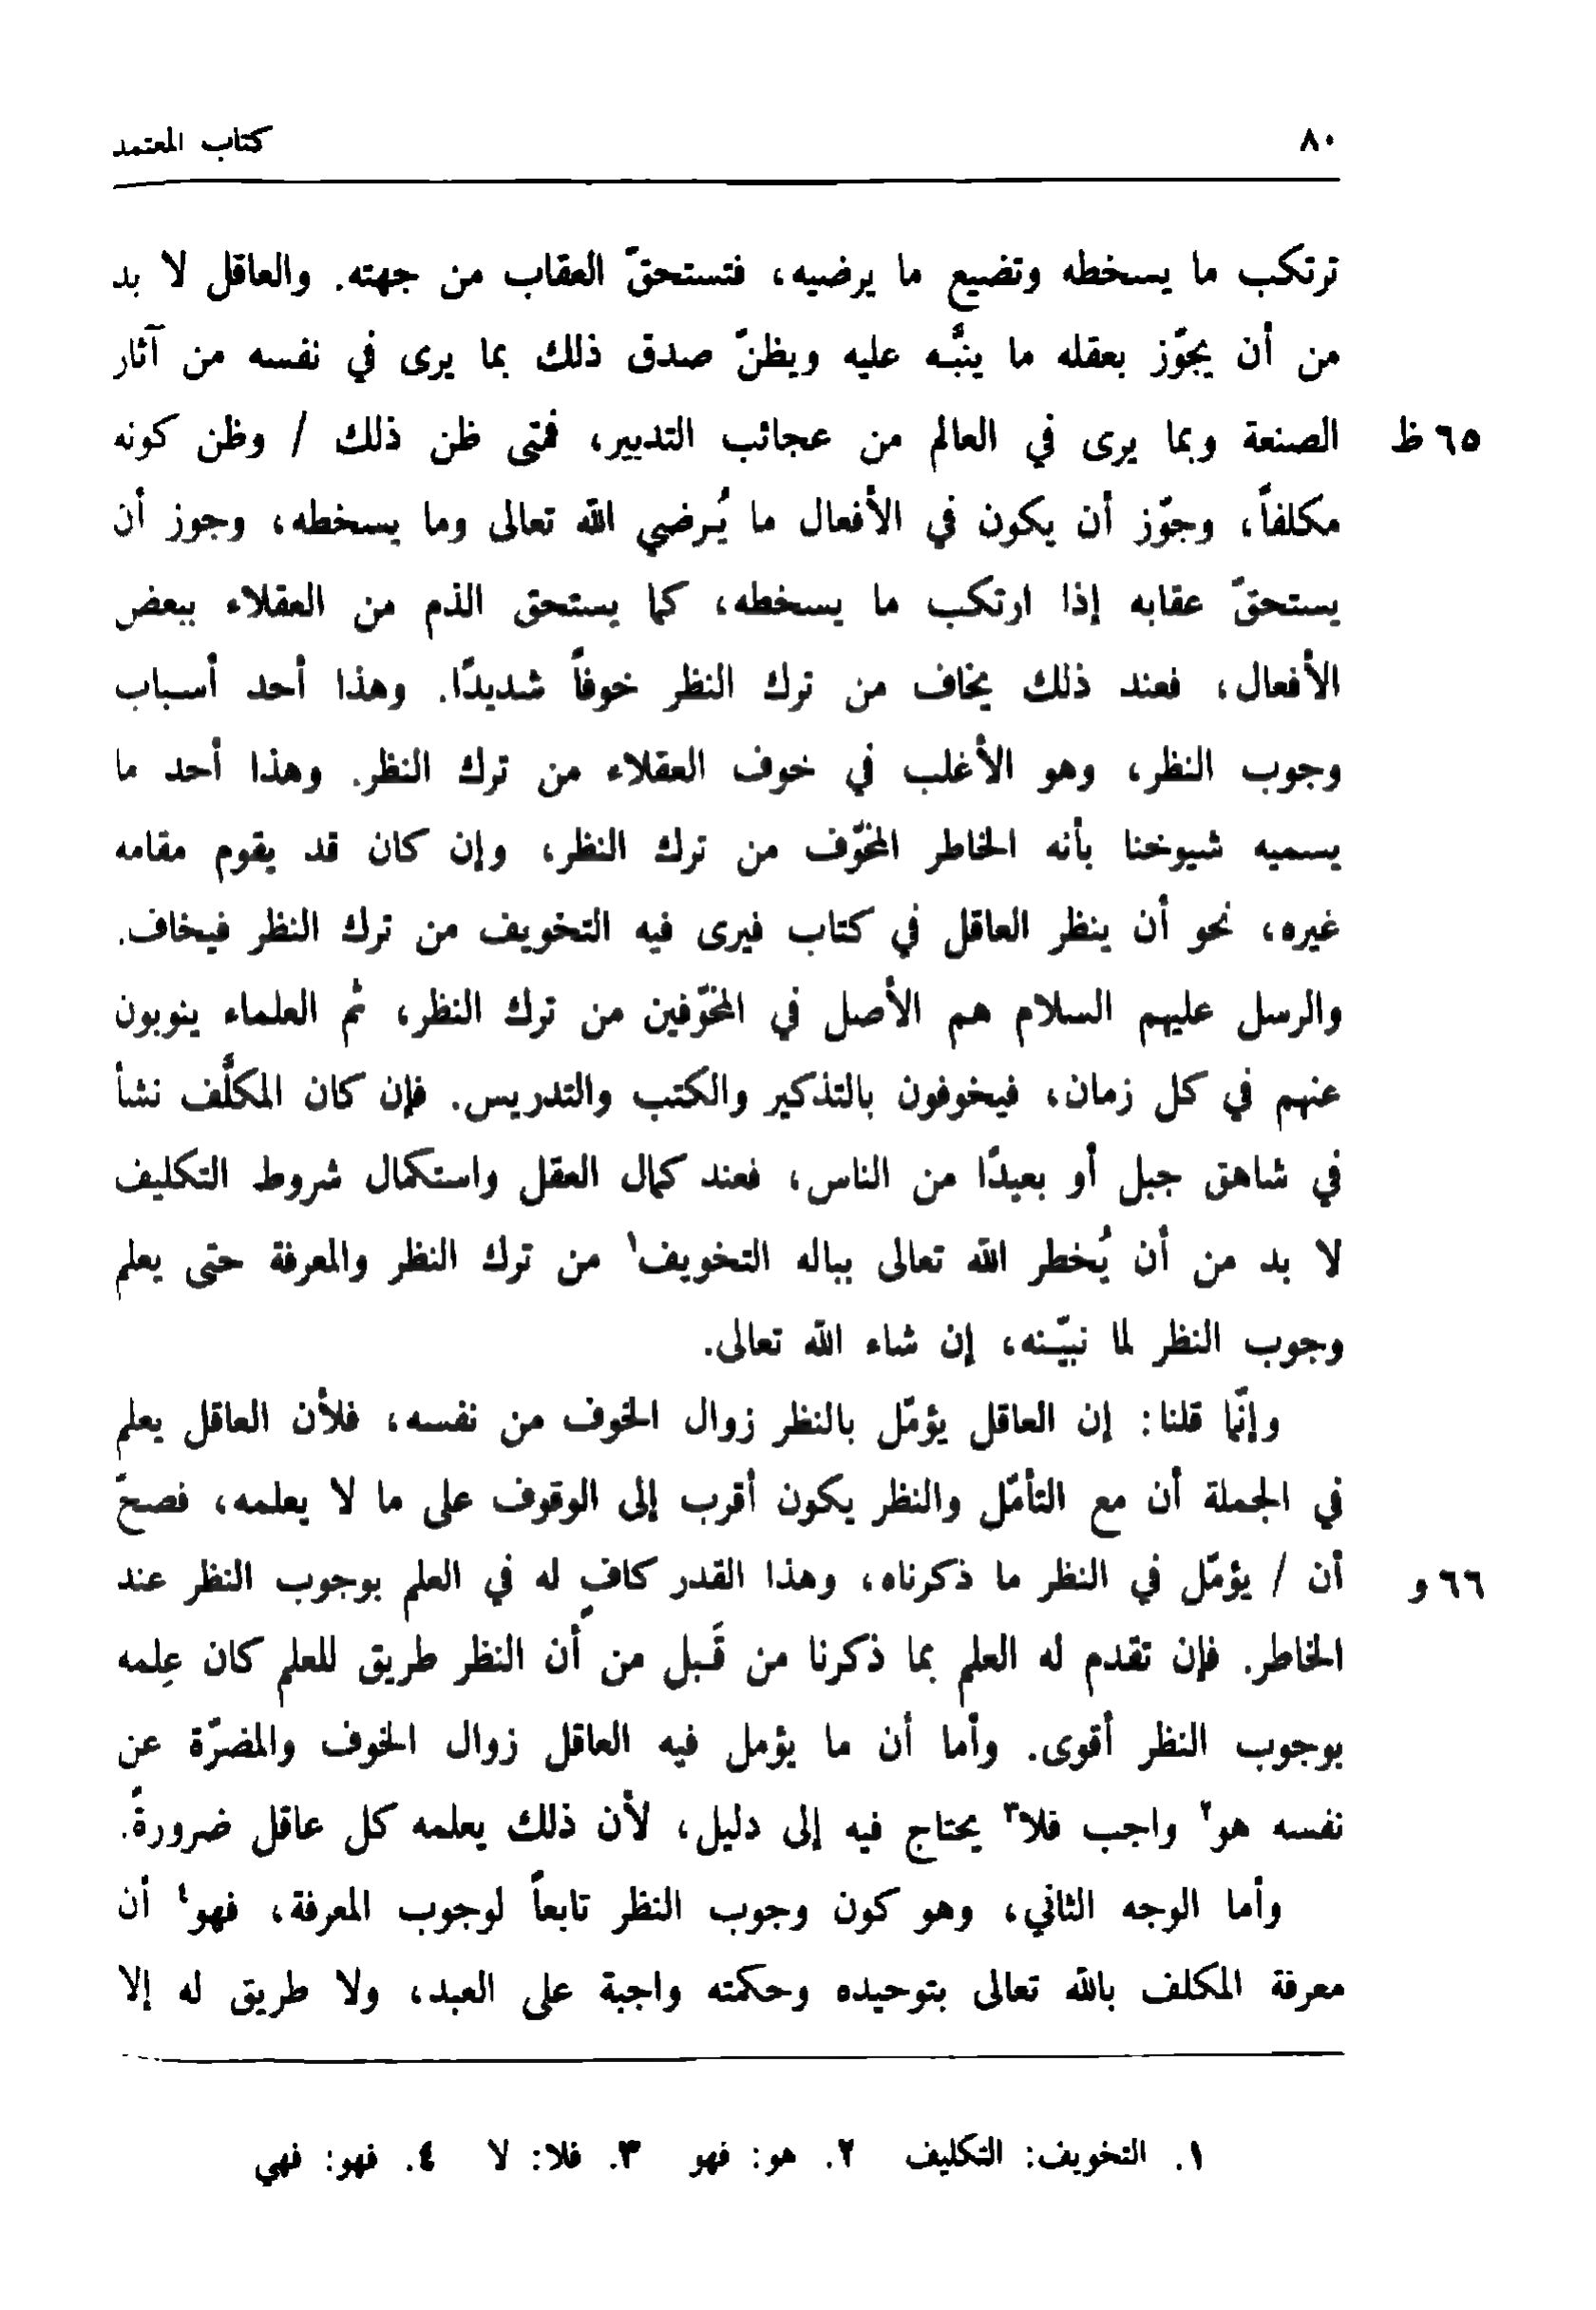 ٨٠ كتاب المعتمد
ترتكب ما يسخطه وتضيع ما يرضيه، فتستحقّ العقاب من جهته. والعاقل لا بد
من أن يجوّز بعقله ما ينبَّه عليه ويظنّ صدق ذلك بما يرى في نفسه من آثار
٦٥ ظ الصنعة وبما يرى في العالم من عجائب التدبير، فمتى ظن ذلك / وظن كونه
مكلفاً، وجوّز أن يكون في الأفعال ما يُرضي الله تعالى وما يسخطه، وجوز أن
يستحقّ عقابه إذا ارتكب ما يسخطه، كما يستحق الذم من العقلاء ببعض
الأفعال، فعند ذلك يخاف من ترك النظر خوفاً شديدًا. وهذا أحد أسباب
وجوب النظر، وهو الأغلب في خوف العقلاء من ترك النظر. وهذا أحد ما
يسميه شيوخنا بأنه الخاطر المخوّف من ترك النظر، وإن كان قد يقوم مقامه
غيره، نحو أن ينظر العاقل في كتاب فيرى فيه التخويف من ترك النظر فيخاف.
والرسل عليهم السلام هم الأصل في المخوّفين من ترك النظر، ثم العلماء ينوبون
عنهم في كل زمان، فيخوفون بالتذكير والكتب والتدريس. فإن كان المكلَّف نشأ
في شاهق جبل أو بعيدًا من الناس، فعند كمال العقل واستكمال شروط التكليف
لا بد من أن يُخطر الله تعالى بباله التخويف١ من ترك النظر والمعرفة حتى يعلم
وجوب النظر لما نبيّنه، إن شاء الله تعالى.
وإنّما قلنا: إن العاقل يؤمّل بالنظر زوال الخوف من نفسه، فلأن العاقل يعلم
في الجملة أن مع التأمّل والنظر يكون أقرب إلى الوقوف على ما لا يعلمه، فصحّ
٦٦ و أن / يؤمّل في النظر ما ذكرناه، وهذا القدر كافٍ له في العلم بوجوب النظر عند
الخاطر. فإن تقدم له العلم بما ذكرنا من قَبل من أن النظر طريق للعلم كان عِلمه
بوجوب النظر أقوى. وأما أن ما يؤمل فيه العاقل زوال الخوف والمضرّة عن
نفسه هو٢ واجب فلا٣ يحتاج فيه إلى دليل، لأن ذلك يعلمه كل عاقل ضرورةً.
وأما الوجه الثاني، وهو كون وجوب النظر تابعاً لوجوب المعرفة، فهو٤ أن
معرفة المكلف بالله تعالى بتوحيده وحكمته واجبة على العبد، ولا طريق له إلا
١. التخويف: التكليف ٢. هو: فهو ٣. فلا: لا ٤. فهو: فهي